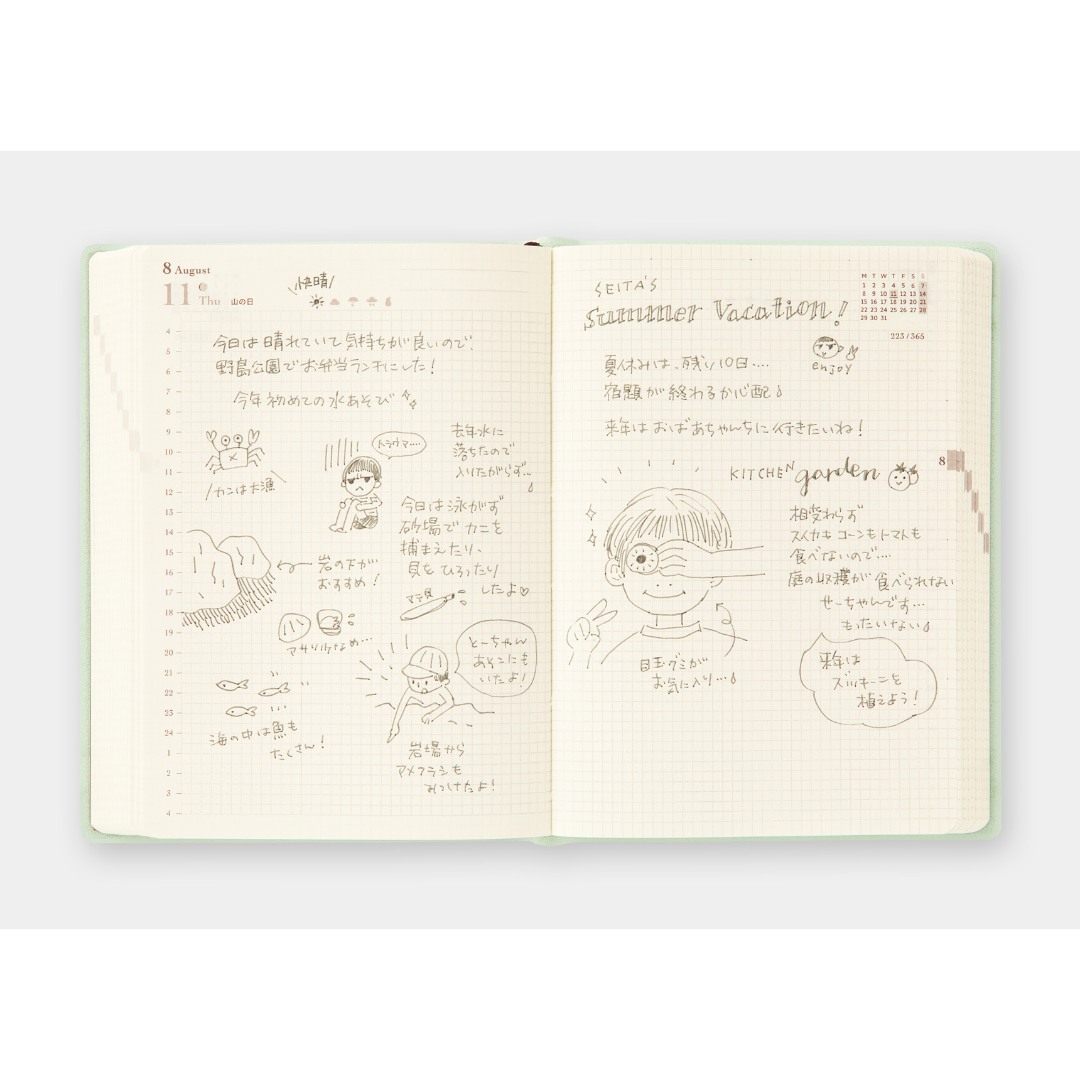 8 August
11 Thu 山の日
快晴
4
5
6
7
8
9
10
11
12
13
14
15
16
17
18
19
20
21
22
23
24
1
2
3
4
今日は晴れていて気持ちが良いので、
野島公園でお弁当ランチにした！
今年初めての水あそび
カニは大漁
トラウマ....
去年水に
落ちたので
入りたがらず...
今日は泳がず
砂場でカニを
捕まえたり、
貝をひろったり
したよ♡
岩の下が
おすすめ！
マテ貝
アサリは少なめ...
とーちゃん
あそこにも
いたよ！
海の中は魚も
たくさん！
岩場から
アメフラシも
みつけたよ！
SEITA'S
Summer Vacation!
enjoy
M T W T F S S
1 2 3 4 5 6 7
8 9 10 11 12 13 14
15 16 17 18 19 20 21
22 23 24 25 26 27 28
29 30 31
223/365
夏休みは、残り10日....
宿題が終わるか心配
来年はおばあちゃんちに行きたいね！
8
KITCHEN garden
相変わらず
スイカもコーンもトマトも
食べないので....
庭の収穫が食べられない
せーちゃんです...
もったいない
目玉グミが
お気に入り...
来年は
ズッキーニを
植えよう！